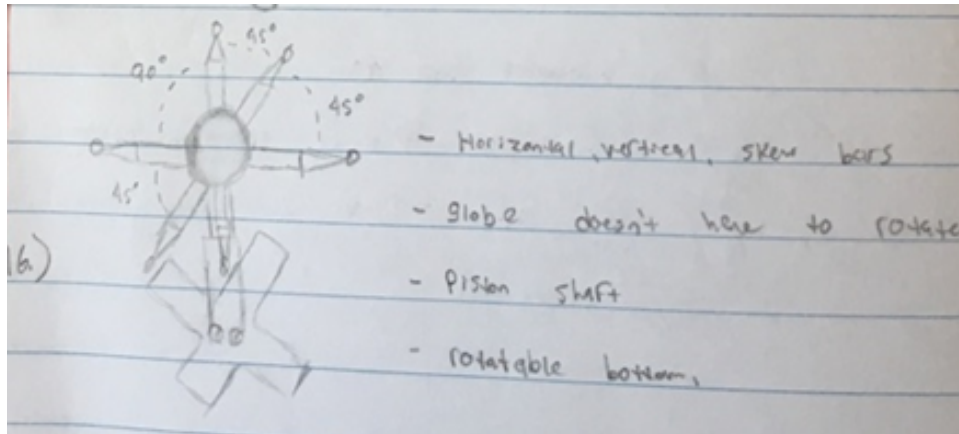 45°
90°
45°
- Horizontal, vertical, skew bars
45°
- globe doesn't here to rotate
16.)
- Piston shaft
- rotatable bottom,